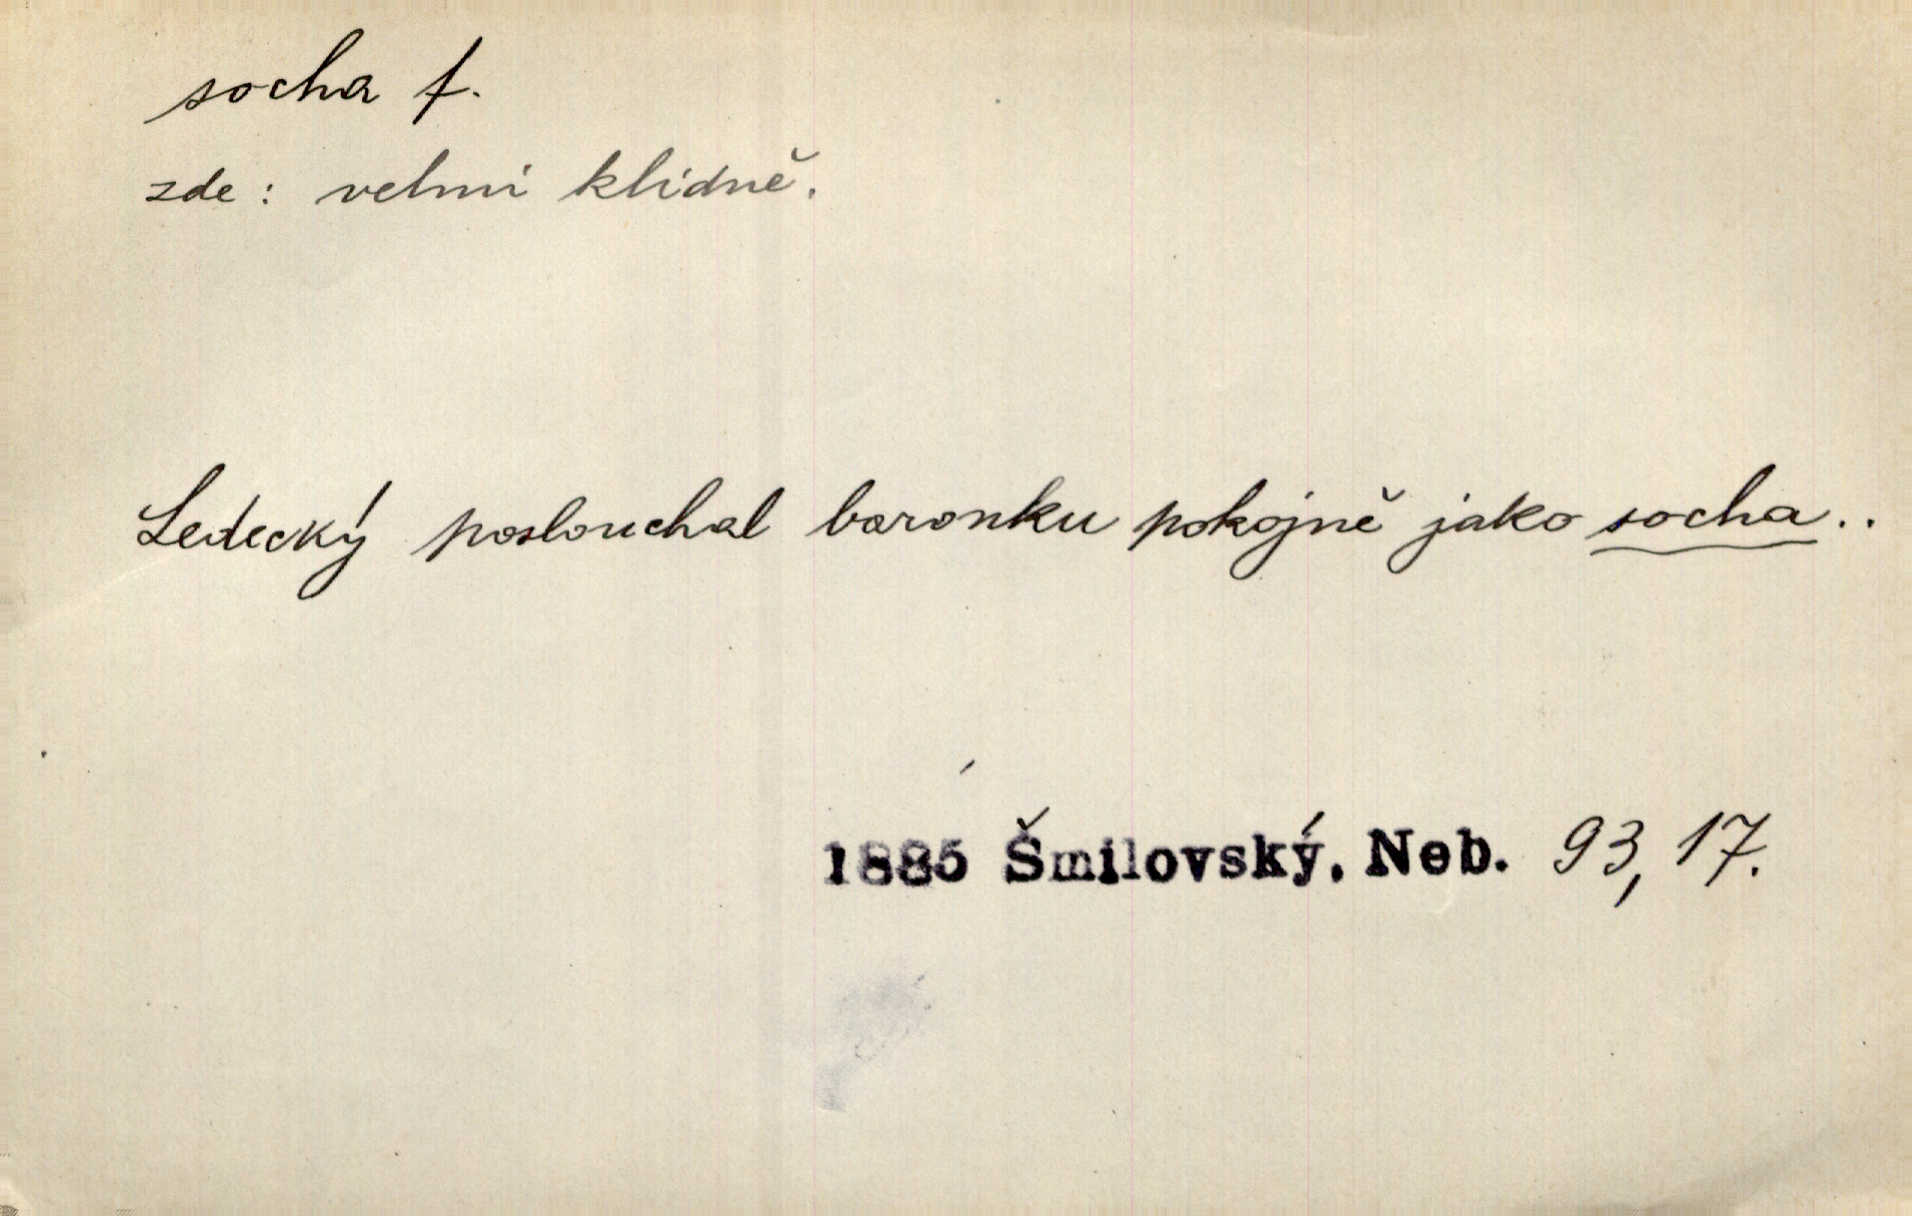 socha f.
zde: velmi klidně.
Ledecký poslouchal baronku pokojně jako socha..
1885 Šmilovský, Neb. 93, 17.